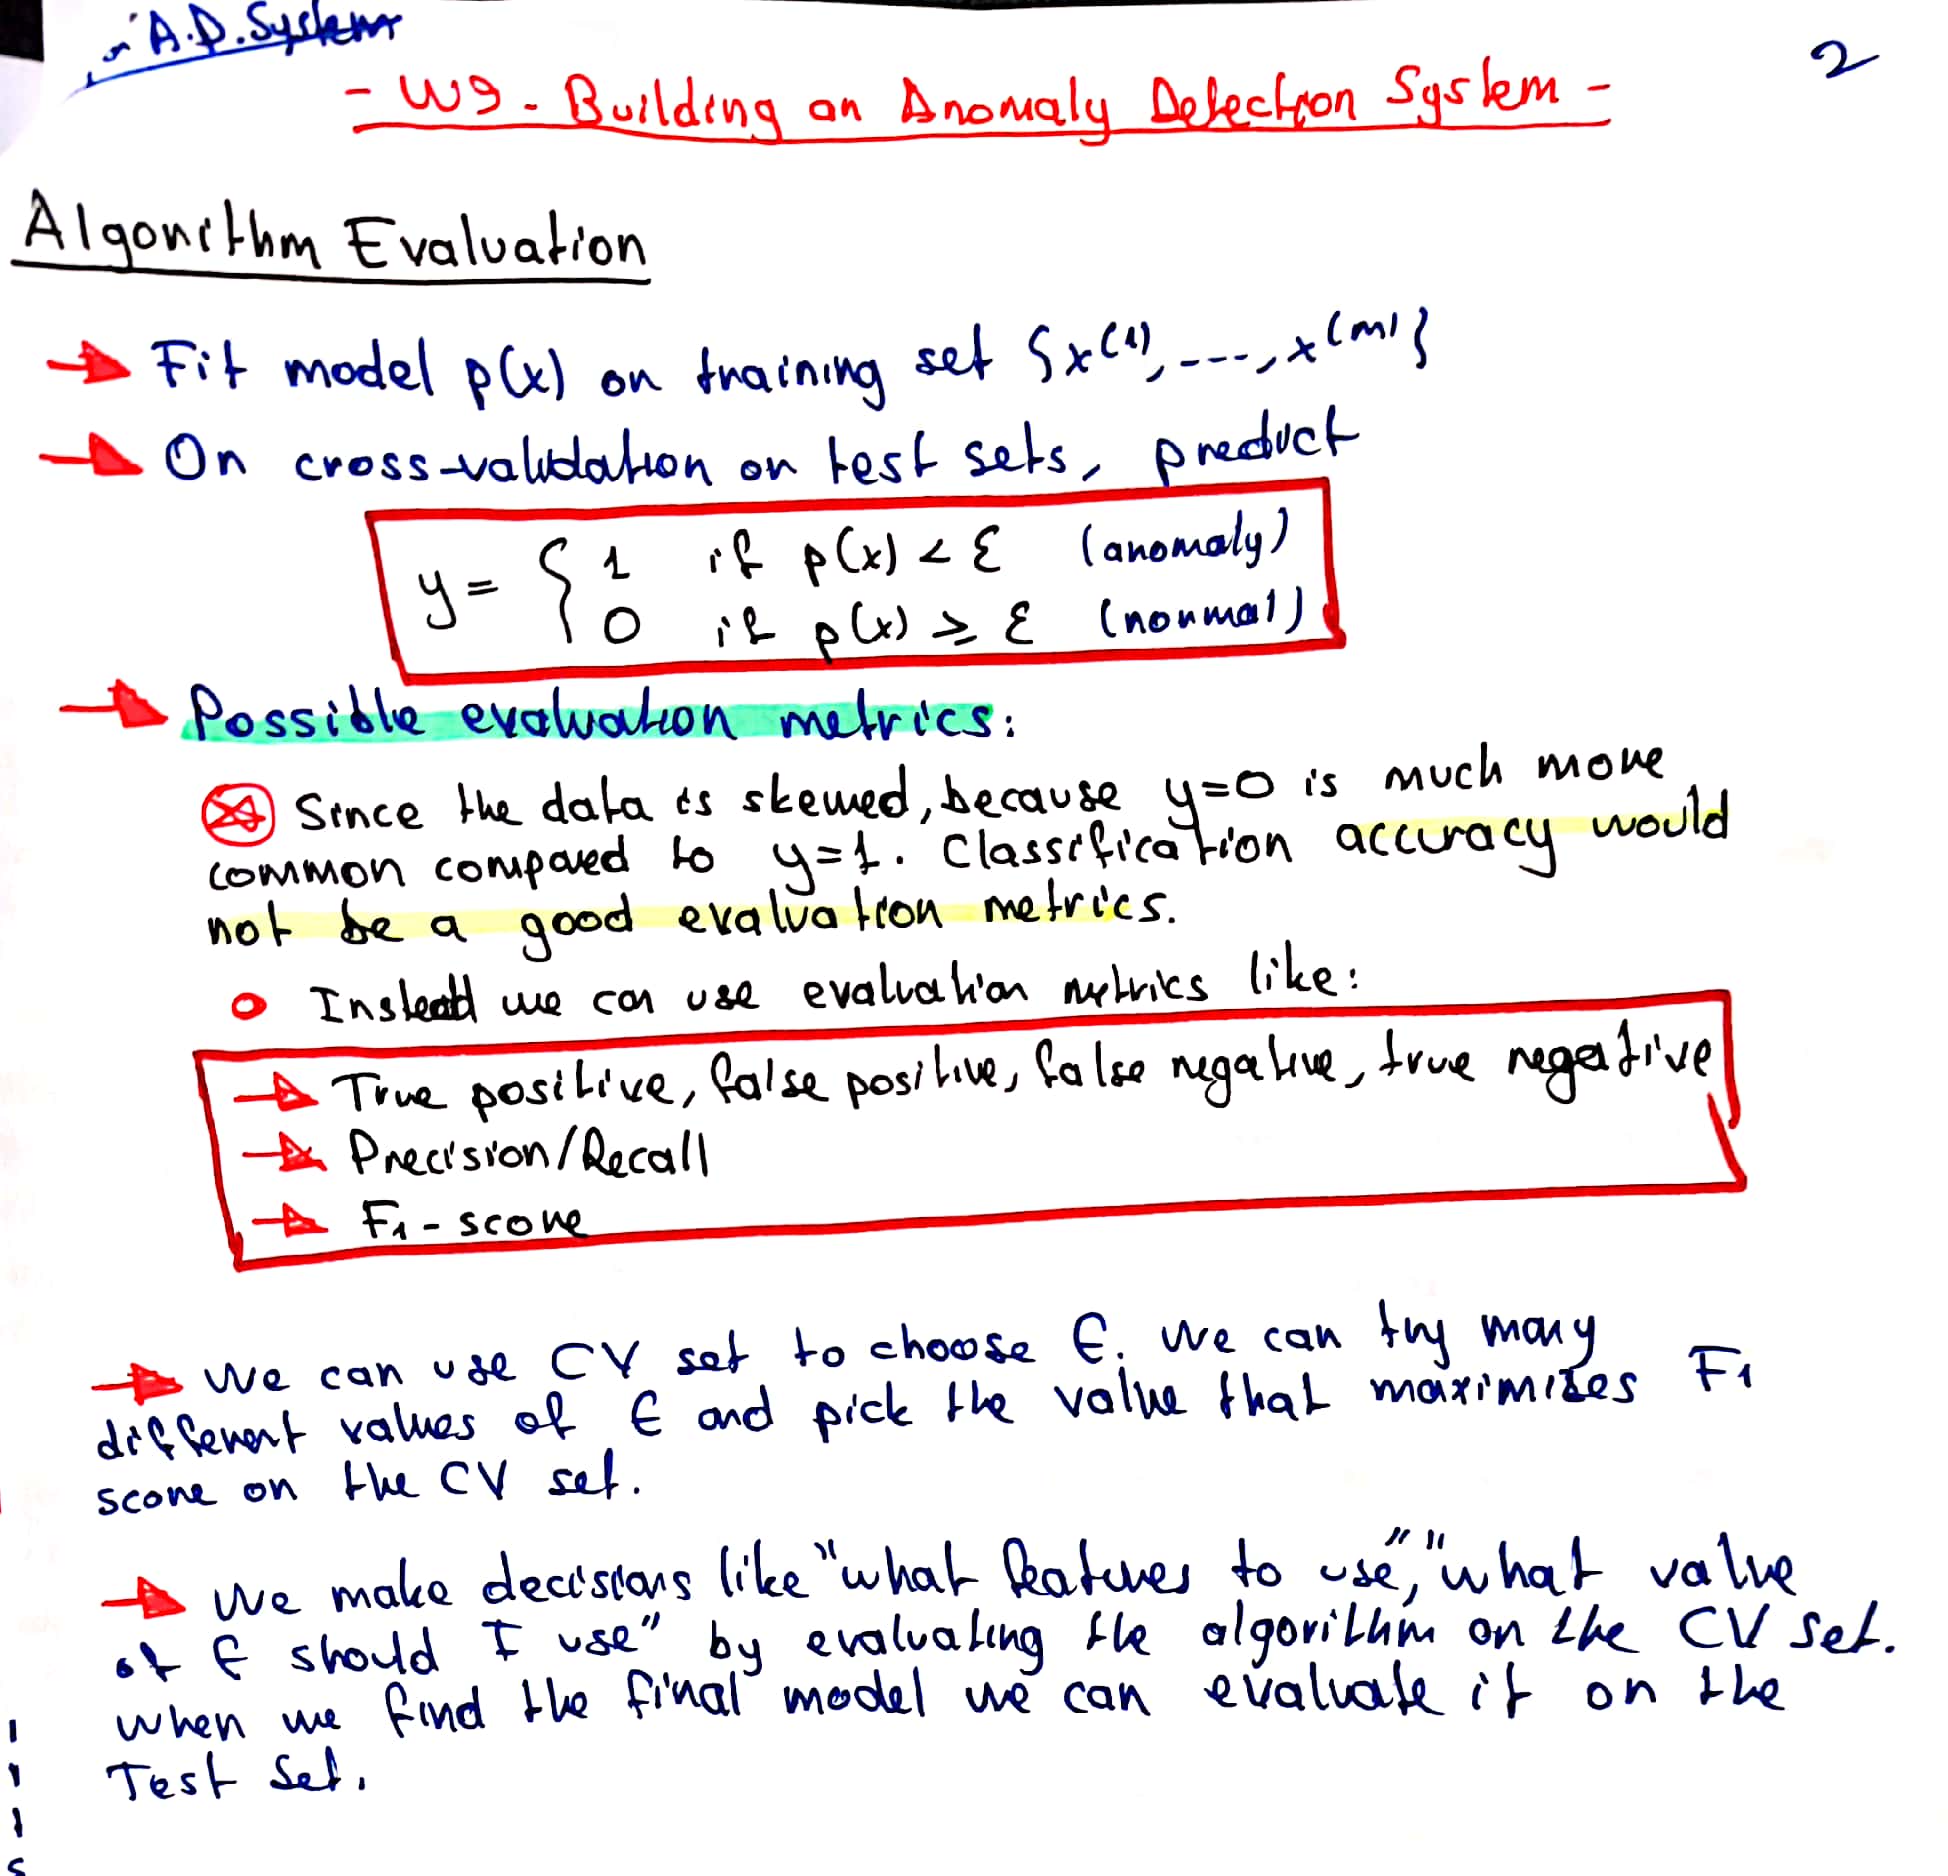 A.D. System
2
- W9 - Building an Anomaly Detection System -
Algorithm Evaluation
Fit model p(x) on training set {x(1), ---, x(m)}
On cross-validation or test sets, predict
y = { 1 if p(x) < ε (anomaly)
0 if p(x) ≥ ε (normal)
Possible evaluation metrics:
Since the data is skewed, because y=0 is much more
common compared to y=1. Classification accuracy would
not be a good evaluation metrics.
Instead we can use evaluation metrics like:
True positive, false positive, false negative, true negative
Precision/Recall
F1 - score
We can use CV set to choose ε. We can try many
different values of ε and pick the value that maximizes F1
score on the CV set.
We make decisions like "what features to use", "what value
of ε should I use" by evaluating the algorithm on the CV set.
When we find the final model we can evaluate it on the
Test Set.